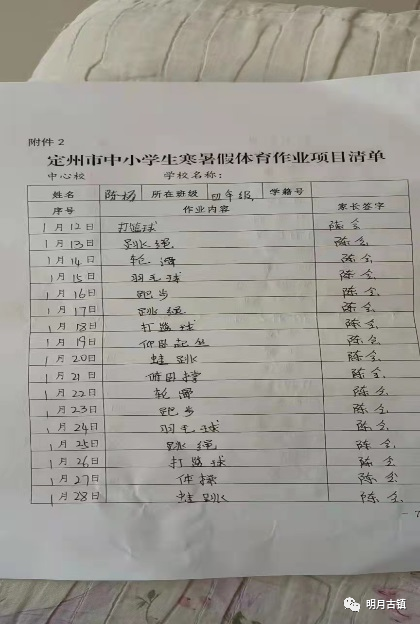 附件2
定州市中小学生寒暑假体育作业项目清单
中心校 学校名称:
姓名 陈杨 所在班级 四年级 学籍号
序号 作业内容 家长签字
1月12日 打篮球 陈会
1月13日 跳绳 陈会
1月14日 轮滑 陈会
1月15日 羽毛球 陈会
1月16日 跑步 陈会
1月17日 跳绳 陈会
1月18日 打篮球 陈会
1月19日 仰卧起坐 陈会
1月20日 蛙跳 陈会
1月21日 俯卧撑 陈会
1月22日 轮滑 陈会
1月23日 跑步 陈会
1月24日 羽毛球 陈会
1月25日 跳绳 陈会
1月26日 打篮球 陈会
1月27日 体操 陈会
1月28日 蛙跳 陈会
- 7
明月古镇